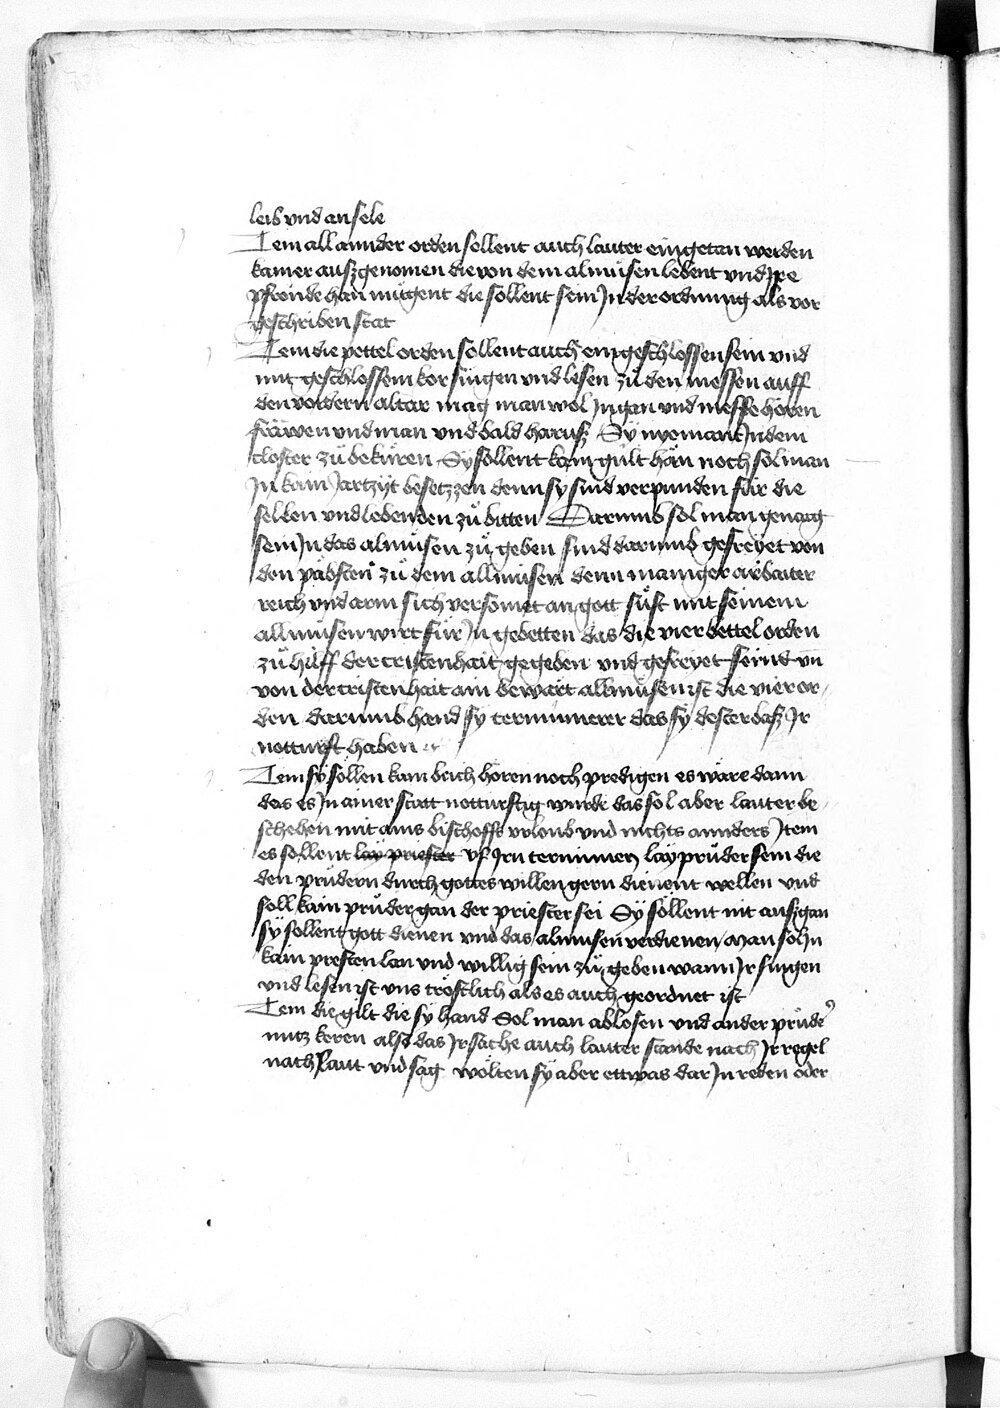 leib vnd an sele
Item all annder orden sollent auch lauter eingetan werden
kainer auszgenomen die von dem almůsen lebent vnd Jre
pfrende han mugent die sollent sein Jn der ordnung als vor
geschriben stat
Item die pettel orden sollent auch eingeschlossen sein vnd
mit geschlossem kor singen vnd lesen zů den messen auff
den vordern altar mag man wol Jngan vnd messe hören
fräwen vnd man vnd bald harusz Sy nyemant Jn dem
closter zů beküren Sy söllent kain gült hän noch sol man
Jn kain Jartzÿt besetzzen denn sy sind verpunden für die
selben vnd lebenden zů bitten Darumb sol man genaig
sein Jn das almůsen zů geben sind darumb gefreÿet von
den päbsten zů dem allmůsen denn maniger arbaiter
reich vnd arm sich versomet an gott süst mit seinem
allmůsen wirt für Jn gebetten das die vier bettel orden
zů hilff der cristenhait gegeben vnd gefreyet seind vn̄
von der cristenhait ain bewärt allmůsen ist die vier or
den darumb hand sy terminierer das sy dester basz Jr
notturft haben
Item sy söllen kain beich hören noch predigen es wäre dann
das es Jn ainer statt notturftig wurde das sol aber lauter be
schehen mit ains bischoffs vrloub vnd nichts annders Jtem
es sollent lay priester vf Jrn terminien lay prüder sein die
den prüdern durch gottes willen gern dienent wellen vnd
soll kain prüder gan der priester sei Sy söllent nit auszgan
sÿ sollent gott dienen vnd das almusen verdienen man sol Jn
kain presten lan vnd willig sein zů geben wann Jr singen
vnd lesen ist vns tröstlich als es auch geordnet ist
Item die gilt die sy hand Sol man ablosen vnd ander prüde
nutz keren also das Jr sache auch lauter stande nach Jr regel
nach laut vnd sag wölten sy aber ettwas dar Jn reden oder